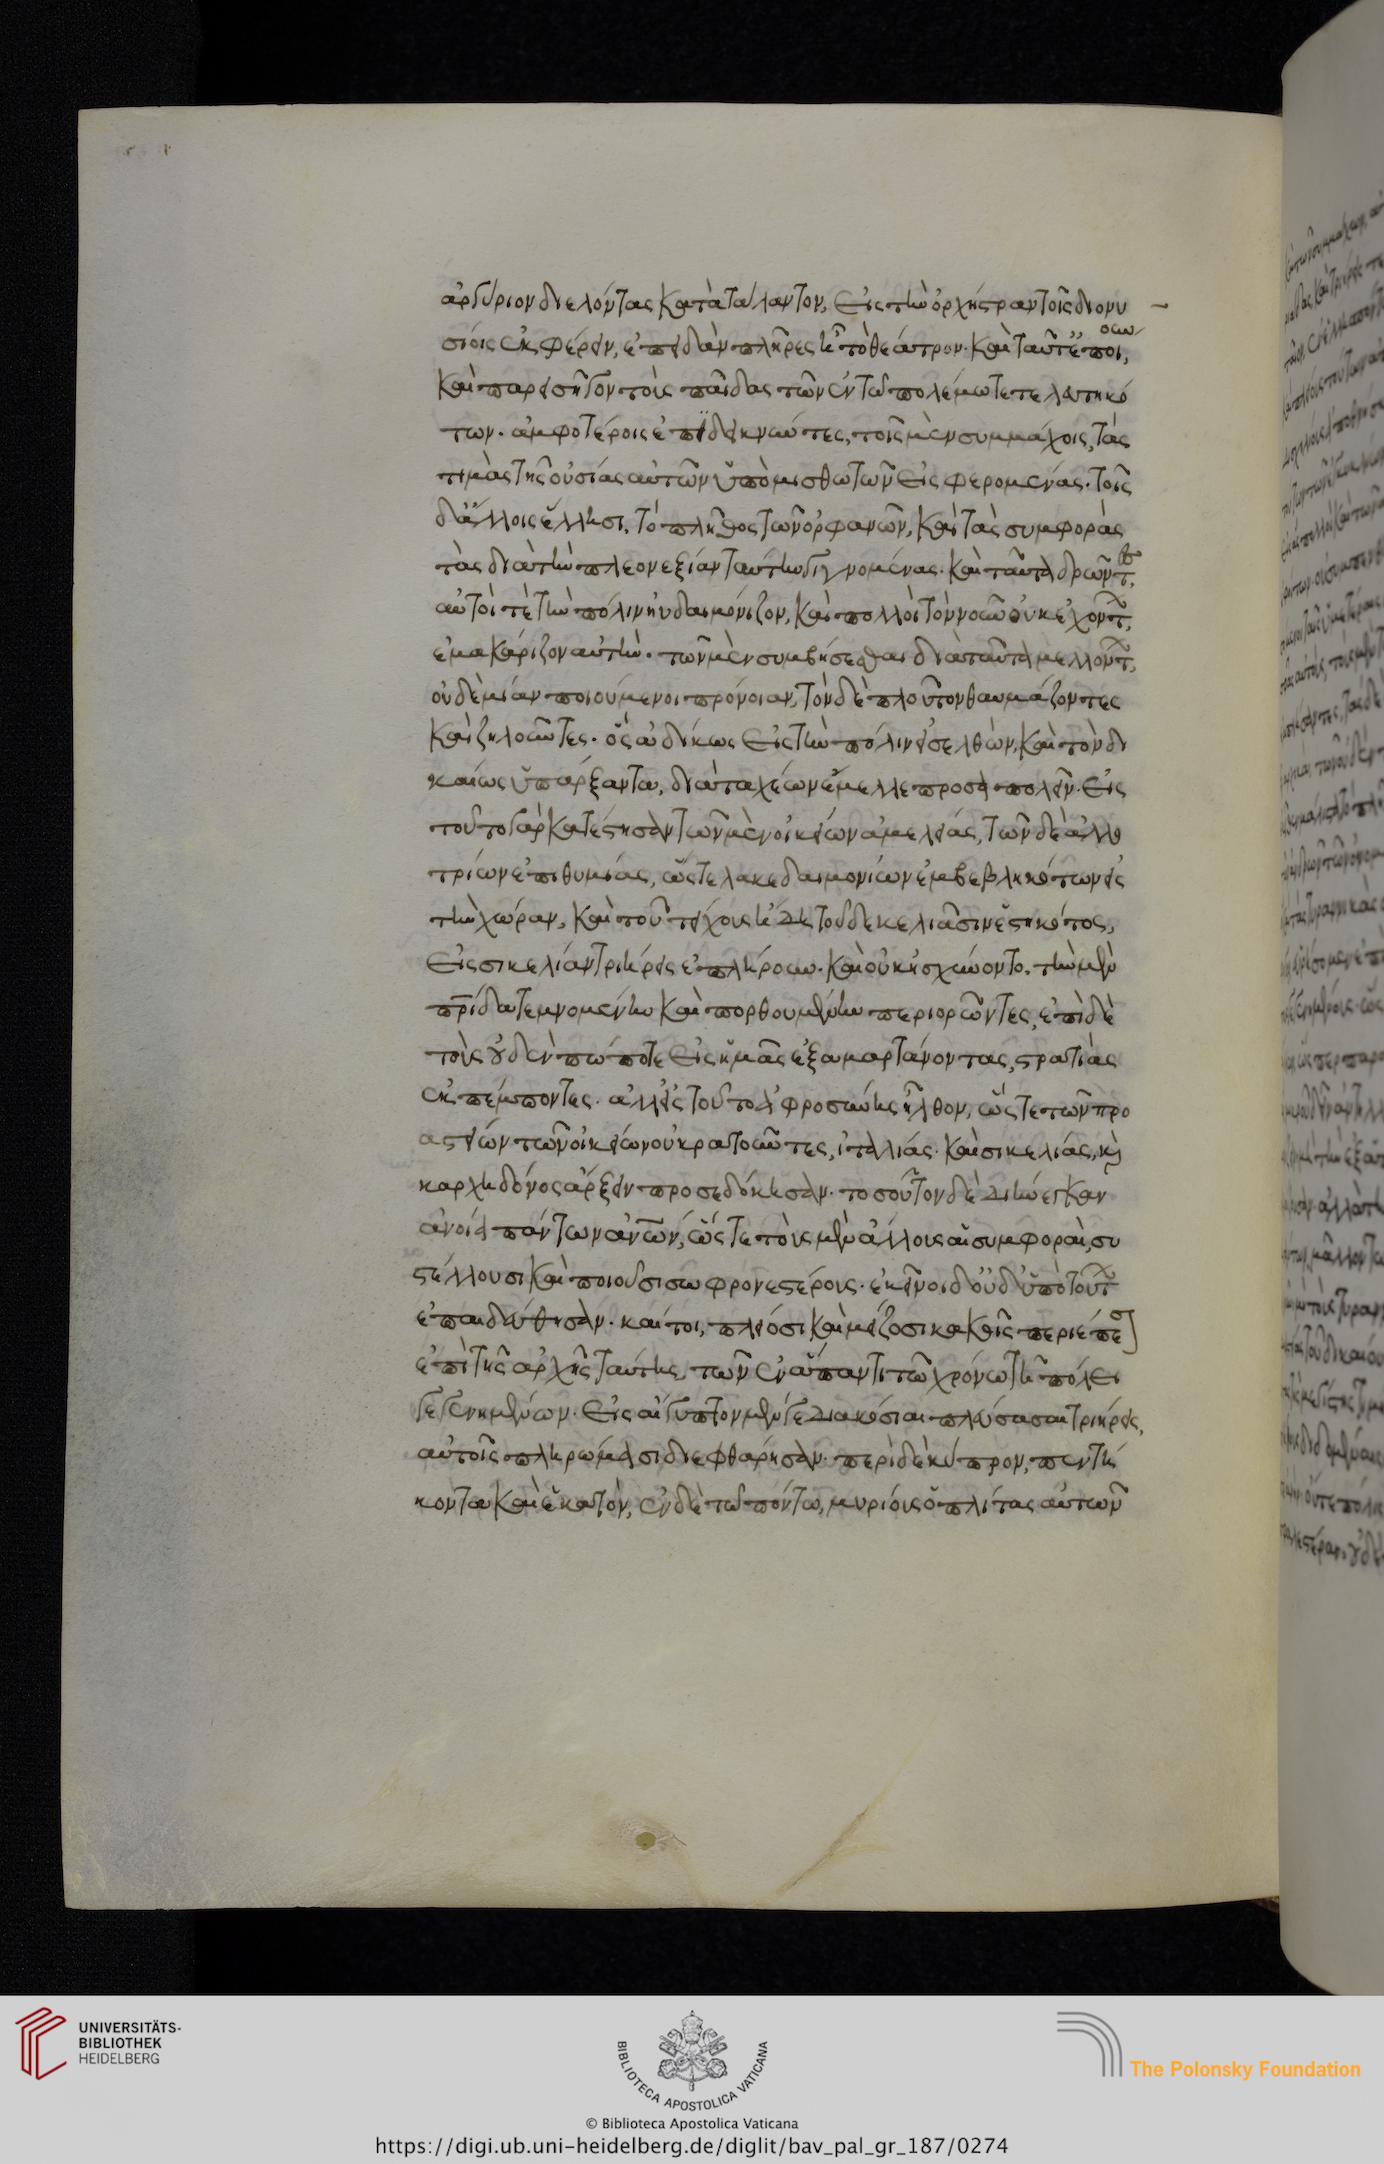 ἀργύριον διελόντας κατὰ τάλαντον, εἰς τὴν ὀρχήστραν τοῖς διονυ
σίοις ἐκφέρειν, ἐπειδὰν πλῆρες ἦ τὸ θέατρον. καὶ ταῦτ' ἐποίουν,
καὶ παρεισῆγον τοὺς παῖδας τῶν ἐν τῶ πολέμω τετελευτηκό
των. ἀμφοτέροις ἐπιδεικνύντες, τοῖς μὲν συμμάχοις, τὰς
τιμὰς τῆς οὐσίας αὐτῶν ὑπὸ μισθωτῶν εἰσφερομένας. τοῖς
δ' ἄλλοις ἕλλησι, τὸ πλῆθος τῶν ὀρφανῶν, καὶ τὰς συμφορὰς
τὰς διὰ τὴν πλεονεξίαν ταύτην γιγνομένας. καὶ ταῦτα δρῶντες,
αὐτοί τε τὴν πόλιν ηὐδαιμόνιζον, καὶ πολλοὶ τῶν νοῦν οὐκ ἐχόντων,
ἐμακάριζον αὐτήν. τῶν μὲν συμβήσεσθαι διὰ ταῦτα μελλόντων,
οὐδὲ μίαν ποιούμενοι πρόνοιαν, τὸν δὲ πλοῦτον θαυμάζοντες
καὶ ζηλοῦντες. ὃς ἀδίκως εἰς τὴν πόλιν εἰσελθών, καὶ τὸν δι
καίως ὑπάρξαντα, διὰ ταχέων ἔμελλε προσαπολεῖν. εἰς
τοῦτο γὰρ κατέστησαν τῶν μὲν οἰκείων ἀμελείας, τῶν δὲ ἀλλο
τρίων ἐπιθυμίας, ὥστε λακεδαιμονίων ἐμβεβληκότων εἰς
τὴν χώραν, καὶ τοῦ τείχους ἤδη τοῦ δεκελειᾶσιν ἑστηκότος,
εἰς σικελίαν τριήρεις ἐπλήρουν. καὶ οὐκ ἠσχύνοντο. τὴν μὲν
πατρίδα τεμνομένην καὶ πορθουμένην περιορῶντες, ἐπὶ δὲ
τοὺς οὐδὲν πώποτε εἰς ἡμᾶς ἐξαμαρτάνοντας, στρατιὰς
ἐκπέμποντες. ἀλλ' εἰς τοῦτο ἀφροσύνης ἦλθον, ὥστε τῶν προ
αστείων τῶν οἰκείων οὐ κρατοῦντες, ἰταλίας. καὶ σικελίας, καὶ
καρχηδόνος ἄρξειν προσεδόκησαν. τοσοῦτον δὲ διήνεγκαν
ἀνοία πάντων ἀνθρώπων, ὥστε τοὺς μὲν ἄλλους αἱ συμφοραὶ, συ
στέλλουσι καὶ ποιοῦσι σωφρονεστέρους. ἐκεῖνοι δ' οὐδ' ὑπὸ τούτων
ἐπαιδεύθησαν. καίτοι, πλείοσι καὶ μείζοσι κακοῖς περιέπεσον
ἐπὶ τῆς ἀρχῆς ταύτης, τῶν ἐν ἅπαντι τῶ χρόνω τῆ πόλει
γεγενημένων. εἰς αἴγυπτον μέν γε διακόσιαι πλεύσασαι τριήρεις,
αὐτοῖς πληρώμασι διεφθάρησαν. περὶ δὲ κύπρον, πεντή
κοντα καὶ ἑκατόν, ἐν δὲ τῶ πόντω, μυρίους ὁπλίτας αὑτῶν
UNIVERSITÄTS-
BIBLIOTHEK
HEIDELBERG
BIBLIOTECA APOSTOLICA VATICANA
The Polonsky Foundation
© Biblioteca Apostolica Vaticana
https://digi.ub.uni-heidelberg.de/diglit/bav_pal_gr_187/0274